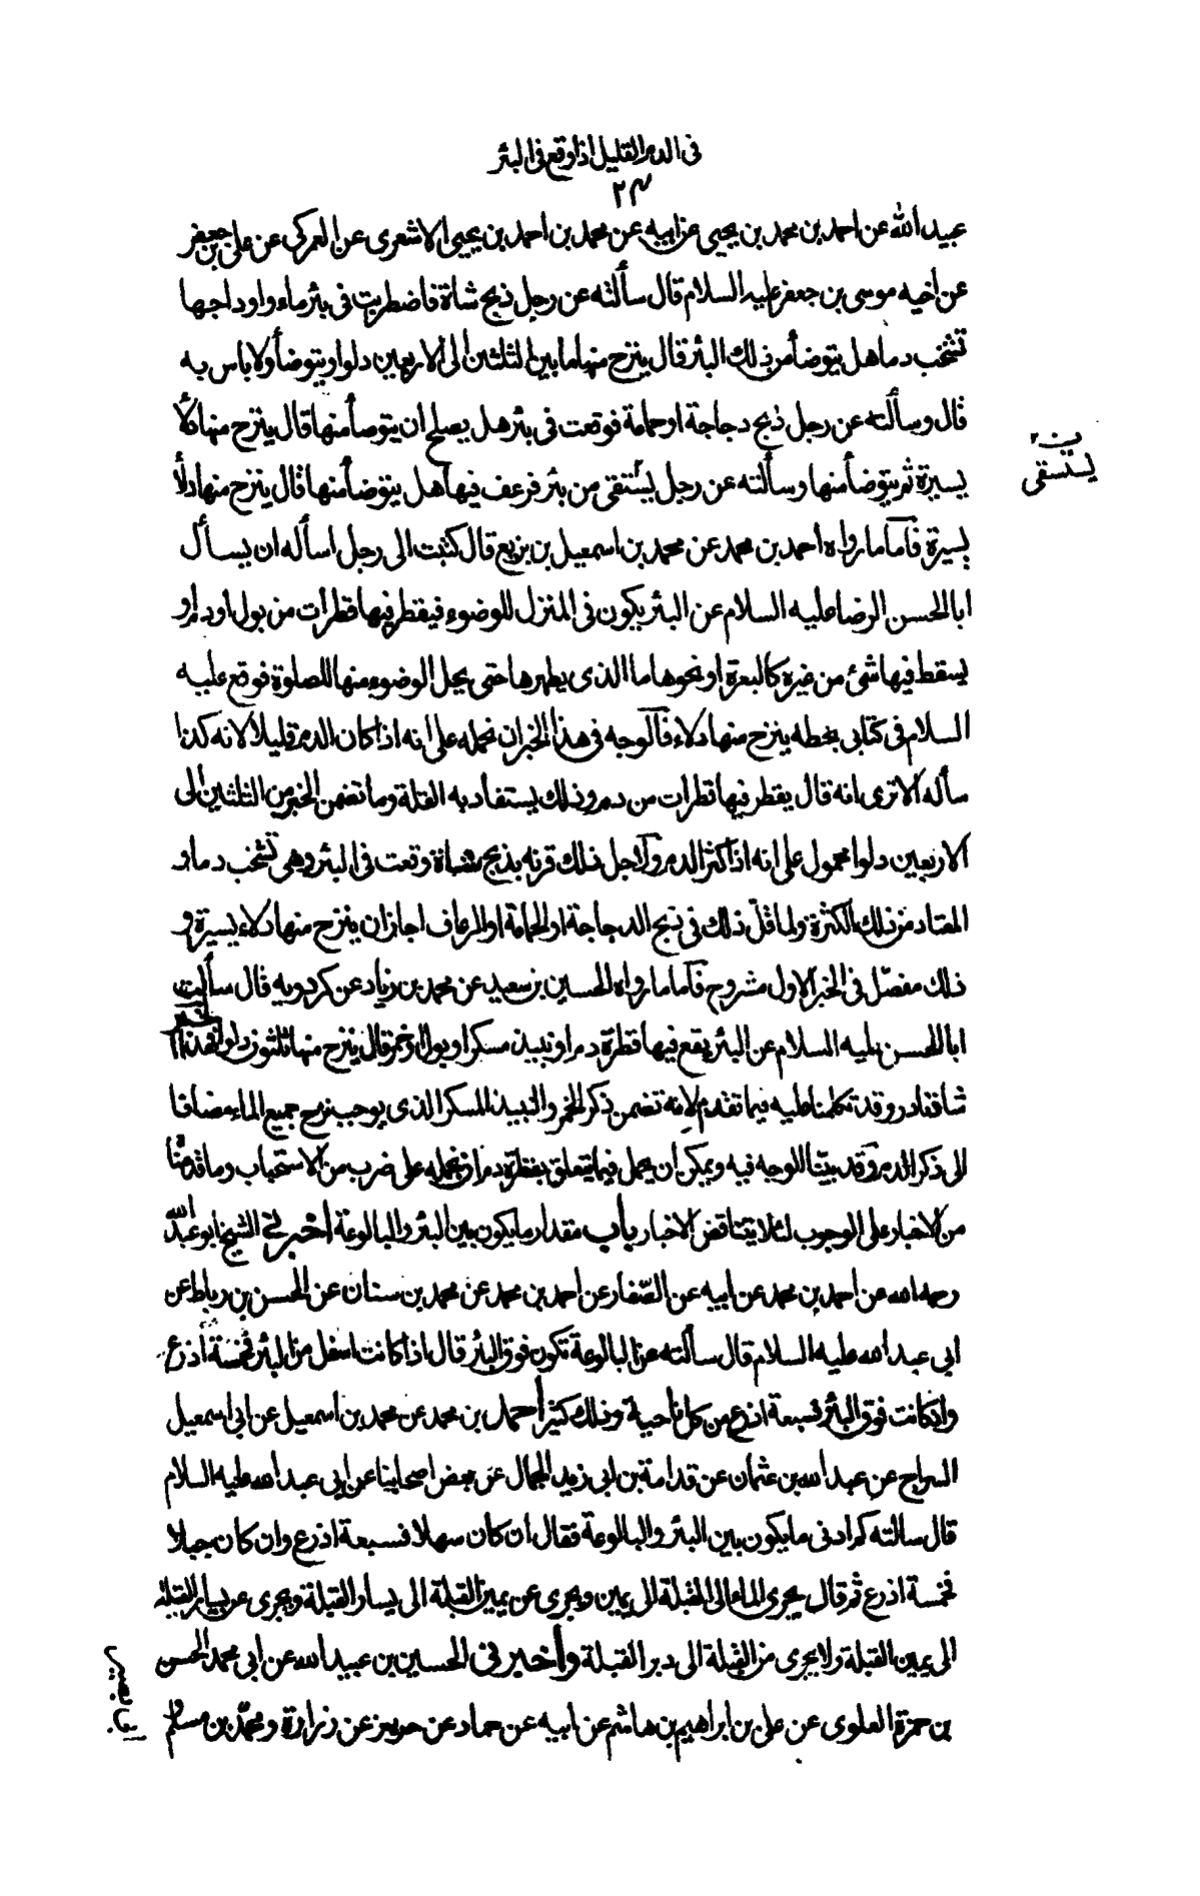 فى الدم القليل اذا وقع فى البئر
٢٣
عبيد الله عن احمد بن محمد بن يحيى عن ابيه عن محمد بن احمد بن يحيى الاشعرى عن العمركى عن على بن جعفر
عن اخيه موسى بن جعفر عليه السلام قال سألته عن رجل ذبح شاة فاضطربت فى بئر ماء واوداجها
تشخب دما هل يتوضأ من ذلك البئر قال ينزح منها ما بين الثلثين الى الاربعين دلوا ويتوضأ ولا باس به
قال وسألته عن رجل ذبح دجاجة او حمامة فوقعت فى بئر هل يصلح ان يتوضأ منها قال ينزح منها دلاء
يسيرة ثم يتوضأ منها وسألته عن رجل يستقى من بئر فرعف فيها هل يتوضأ منها قال ينزح منها دلاء
يستسقى
يسيرة فاما ما رواه احمد بن محمد عن محمد بن اسمعيل بن بزيع قال كتبت الى رجل اسأله ان يسأل
ابا الحسن الرضا عليه السلام عن البئر يكون فى المنزل للوضوء فيقطر فيها قطرات من بول او دم او
يسقط فيها شئ من غيره كالبعرة او نحوها ما الذى يطهرها حتى يحل الوضوء منها للصلوة فوقع عليه
السلام فى كتابى بخطه ينزح منها دلاء فالوجه فى هذا الخبر ان نحمله على انه اذا كان الدم قليلا لانه كذا
سأله الا ترى انه قال يقطر فيها قطرات من دم وذلك يستفاد به القلة وما تضمن الخبر من الثلثين الى
الاربعين دلوا محمول على انه اذا كثر الدم ولاجل ذلك قرنه بذبح شاة وقعت فى البئر وهى تشخب دما و
المعتاد من ذلك الكثرة ولما قل ذلك فى ذبح الدجاجة او الحمامة او الرعاف اجاز ان ينزح منها دلاء يسيرة و
ذلك مفصّل فى الخبر الاول مشروح فاما ما رواه الحسين بن سعيد عن محمد بن زياد عن كردويه قال سألت
ابا الحسن عليه السلام عن البئر يقع فيها قطرة دم او نبيذ مسكر او بول او خمر قال ينزح منها ثلثون دلوا فهذا الخبر
شاذ نادر وقد تكلمنا عليه فيما تقدم لانه تضمن ذكر الخمر والنبيذ المسكر الذى يوجب نزح جميع الماء مضافا
الى ذكر الدم وقد بيّنا الوجه فيه ويمكن ان يحمل فيما يتعلق بقطرة دم ان نحمله على ضرب من الاستحباب وما قدمنا
من الاخبار على الوجوب لئلا يتناقض الاخبار باب مقدار ما يكون بين البئر والبالوعة اخبرنى الشيخ ابو عبد الله
رحمه الله عن احمد بن محمد عن ابيه عن الصّفار عن احمد بن محمد عن محمد بن سنان عن الحسن بن رباط عن
ابى عبد الله عليه السلام قال سألته عن البالوعة تكون فوق البئر قال اذا كانت اسفل من البئر فخمسة اذرع
واذا كانت فوق البئر فسبعة اذرع من كل ناحية وذلك كثير احمد بن محمد عن محمد بن اسمعيل عن ابى اسمعيل
السراج عن عبد الله بن عثمان عن قدامة بن ابى زيد الجمال عن بعض اصحابنا عن ابى عبد الله عليه السلام
قال سالته كم ادنى ما يكون بين البئر والبالوعة فقال ان كان سهلا فسبعة اذرع وان كان جبلا
فخمسة اذرع ثم قال يجرى الماء الى القبلة الى يمين ويجرى عن يمين القبلة الى يسار القبلة ويجرى عن يسار القبلة
الى يمين القبلة ولا يجرى من القبلة الى دبر القبلة واخبرنى الحسين بن عبيد الله عن ابى محمد الحسن
بن حمزة العلوى عن على بن ابراهيم بن هاشم عن ابيه عن حماد عن حريز عن زرارة ومحمّد بن مسلم و